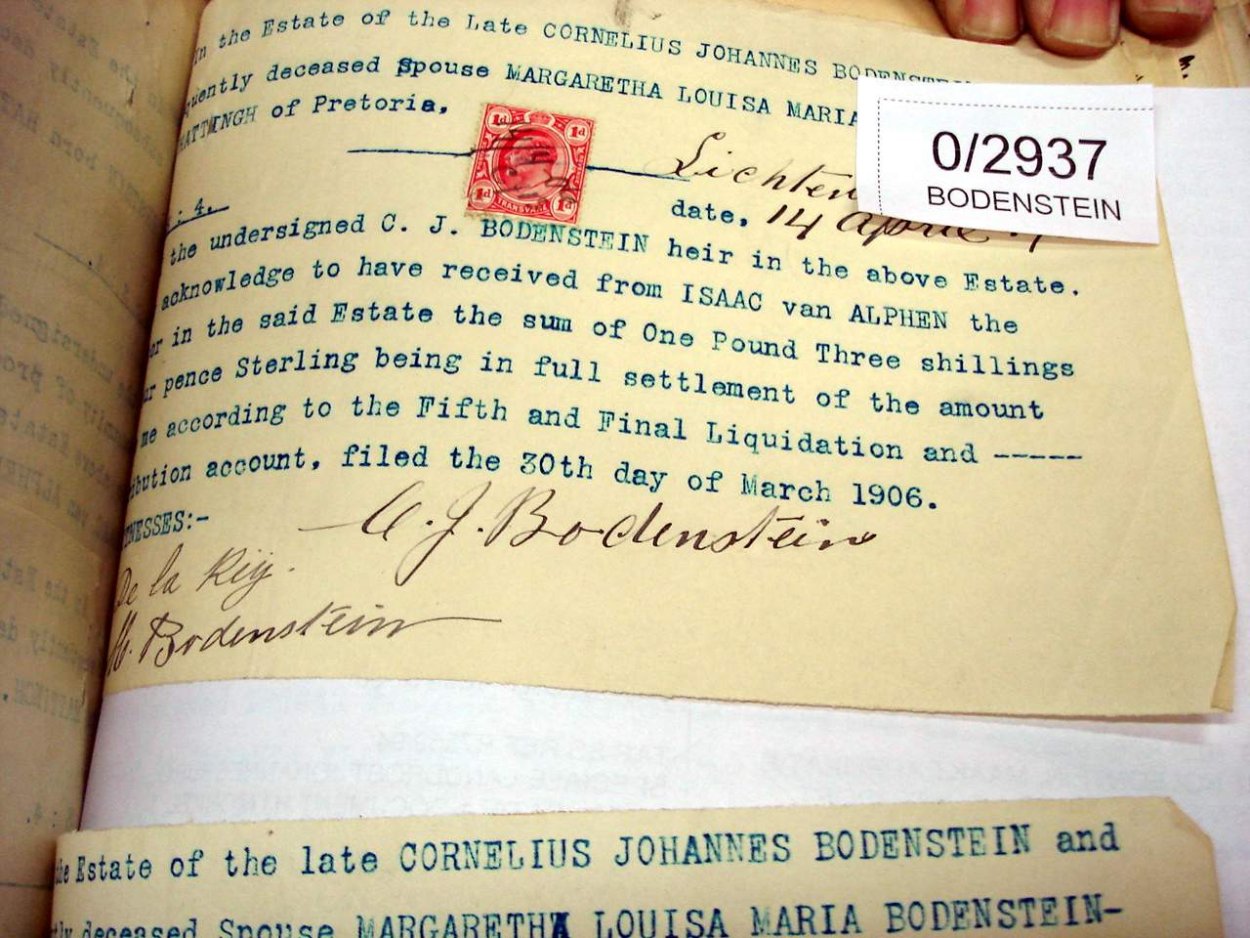 In the Estate of the Late CORNELIUS JOHANNES BODENSTEIN
quently deceased Spouse MARGARETHA LOUISA MARIA
HATTINGH of Pretoria.
1d 1d
1d TRANSVAAL 1d
0/2937
BODENSTEIN
Lichten
: 4.
date, 14 April
the undersigned C. J. BODENSTEIN heir in the above Estate.
acknowledge to have received from ISAAC van ALPHEN the
or in the said Estate the sum of One Pound Three shillings
ur pence Sterling being in full settlement of the amount
me according to the Fifth and Final Liquidation and -----
ibution account, filed the 30th day of March 1906.
TNESSES:-
C. J. Bodenstein
De la Rey.
Bodenstein
the Estate of the late CORNELIUS JOHANNES BODENSTEIN and
tly deceased Spouse MARGARETHA LOUISA MARIA BODENSTEIN-